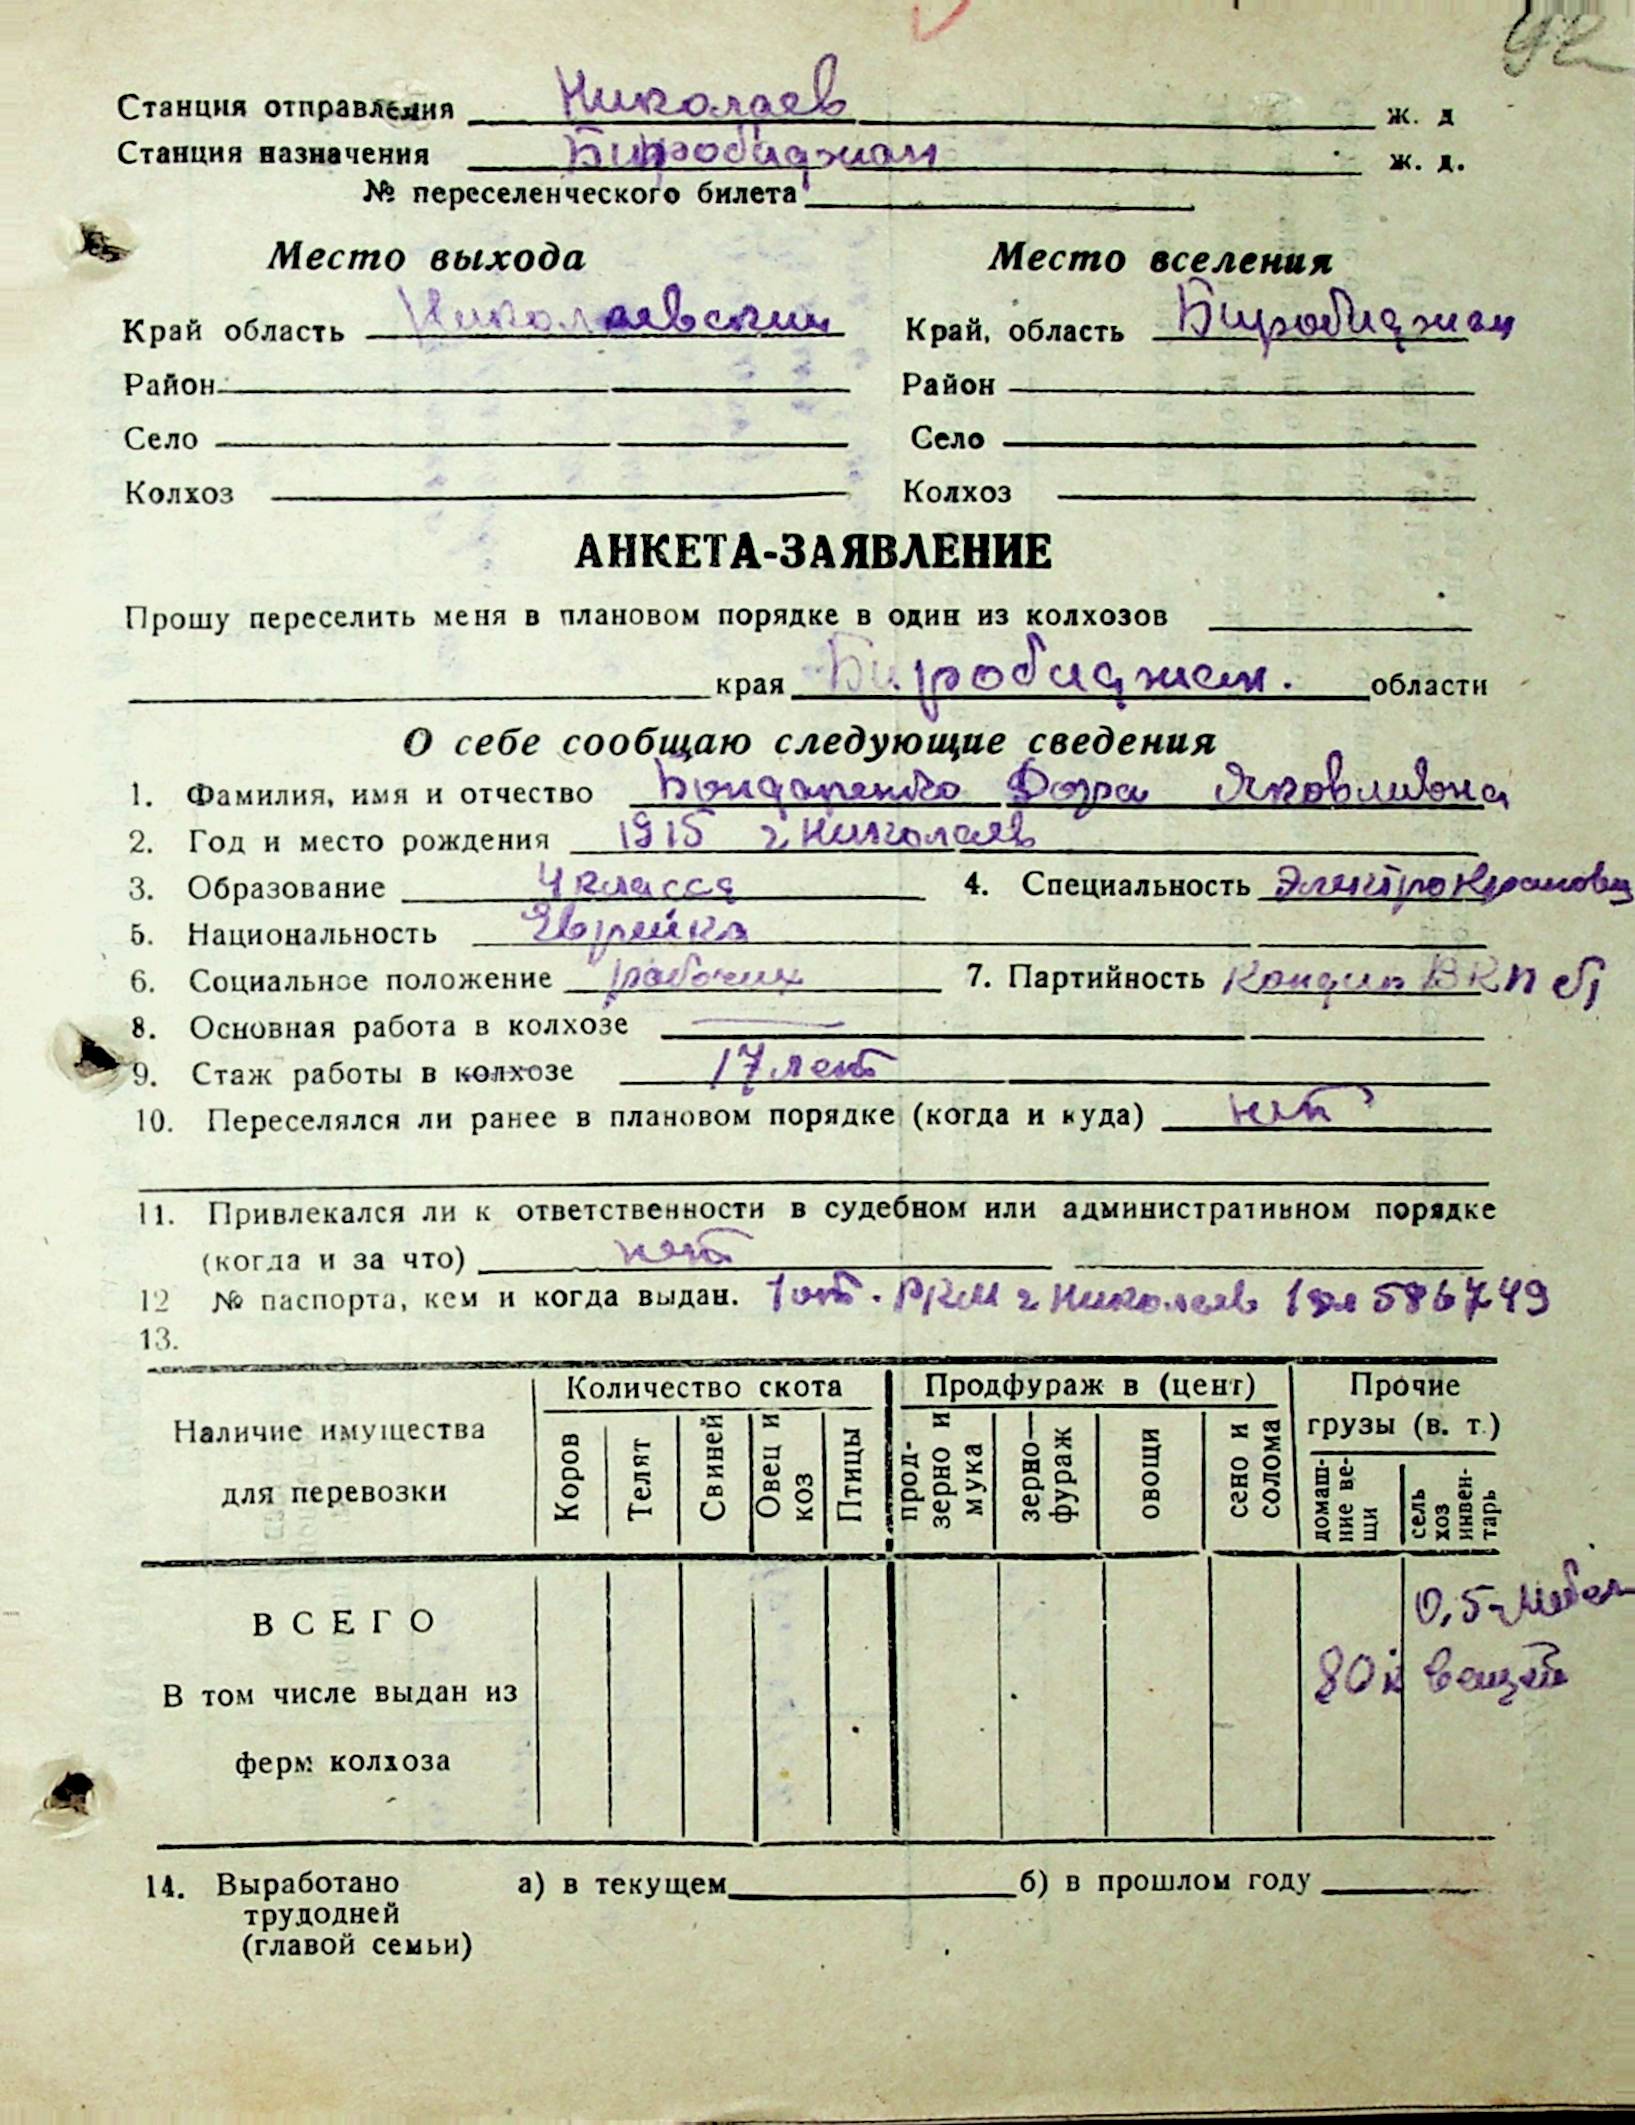 92
Станция отправления Николаев ж. д
Станция назначения Биробиджан ж. д.
№ переселенческого билета
Место выхода Место вселения
Край область Николаевский Край, область Биробиджан
Район Район
Село Село
Колхоз Колхоз
АНКЕТА-ЗАЯВЛЕНИЕ
Прошу переселить меня в плановом порядке в один из колхозов
края Биробиджан. области
О себе сообщаю следующие сведения
1. Фамилия, имя и отчество Бондаренко Дора Яковливона
2. Год и место рождения 1915 г. Николаев
3. Образование 4 класса 4. Специальность Электрокрановщ
5. Национальность Яврейка
6. Социальное положение рабочих 7. Партийность Кандид ВКП б)
8. Основная работа в колхозе —
9. Стаж работы в колхозе 17 лет
10. Переселялся ли ранее в плановом порядке (когда и куда) нет
11. Привлекался ли к ответственности в судебном или административном порядке
(когда и за что) нет
12 № паспорта, кем и когда выдан. 1 от. РКМ г Николаев 586749
13.
Наличие имущества для перевозки
Количество скота
Продфураж в (цент)
Прочие грузы (в. т.)
Коров
Телят
Свиней
Овец и коз
Птицы
прод-зерно и мука
зерно—фураж
овощи
сено и солома
домаш-ние ве-щи
сель хоз инвен-тарь
ВСЕГО 0,5-мебел
В том числе выдан из 80к вещей
ферм колхоза
14. Выработано а) в текущем б) в прошлом году
трудодней
(главой семьи)